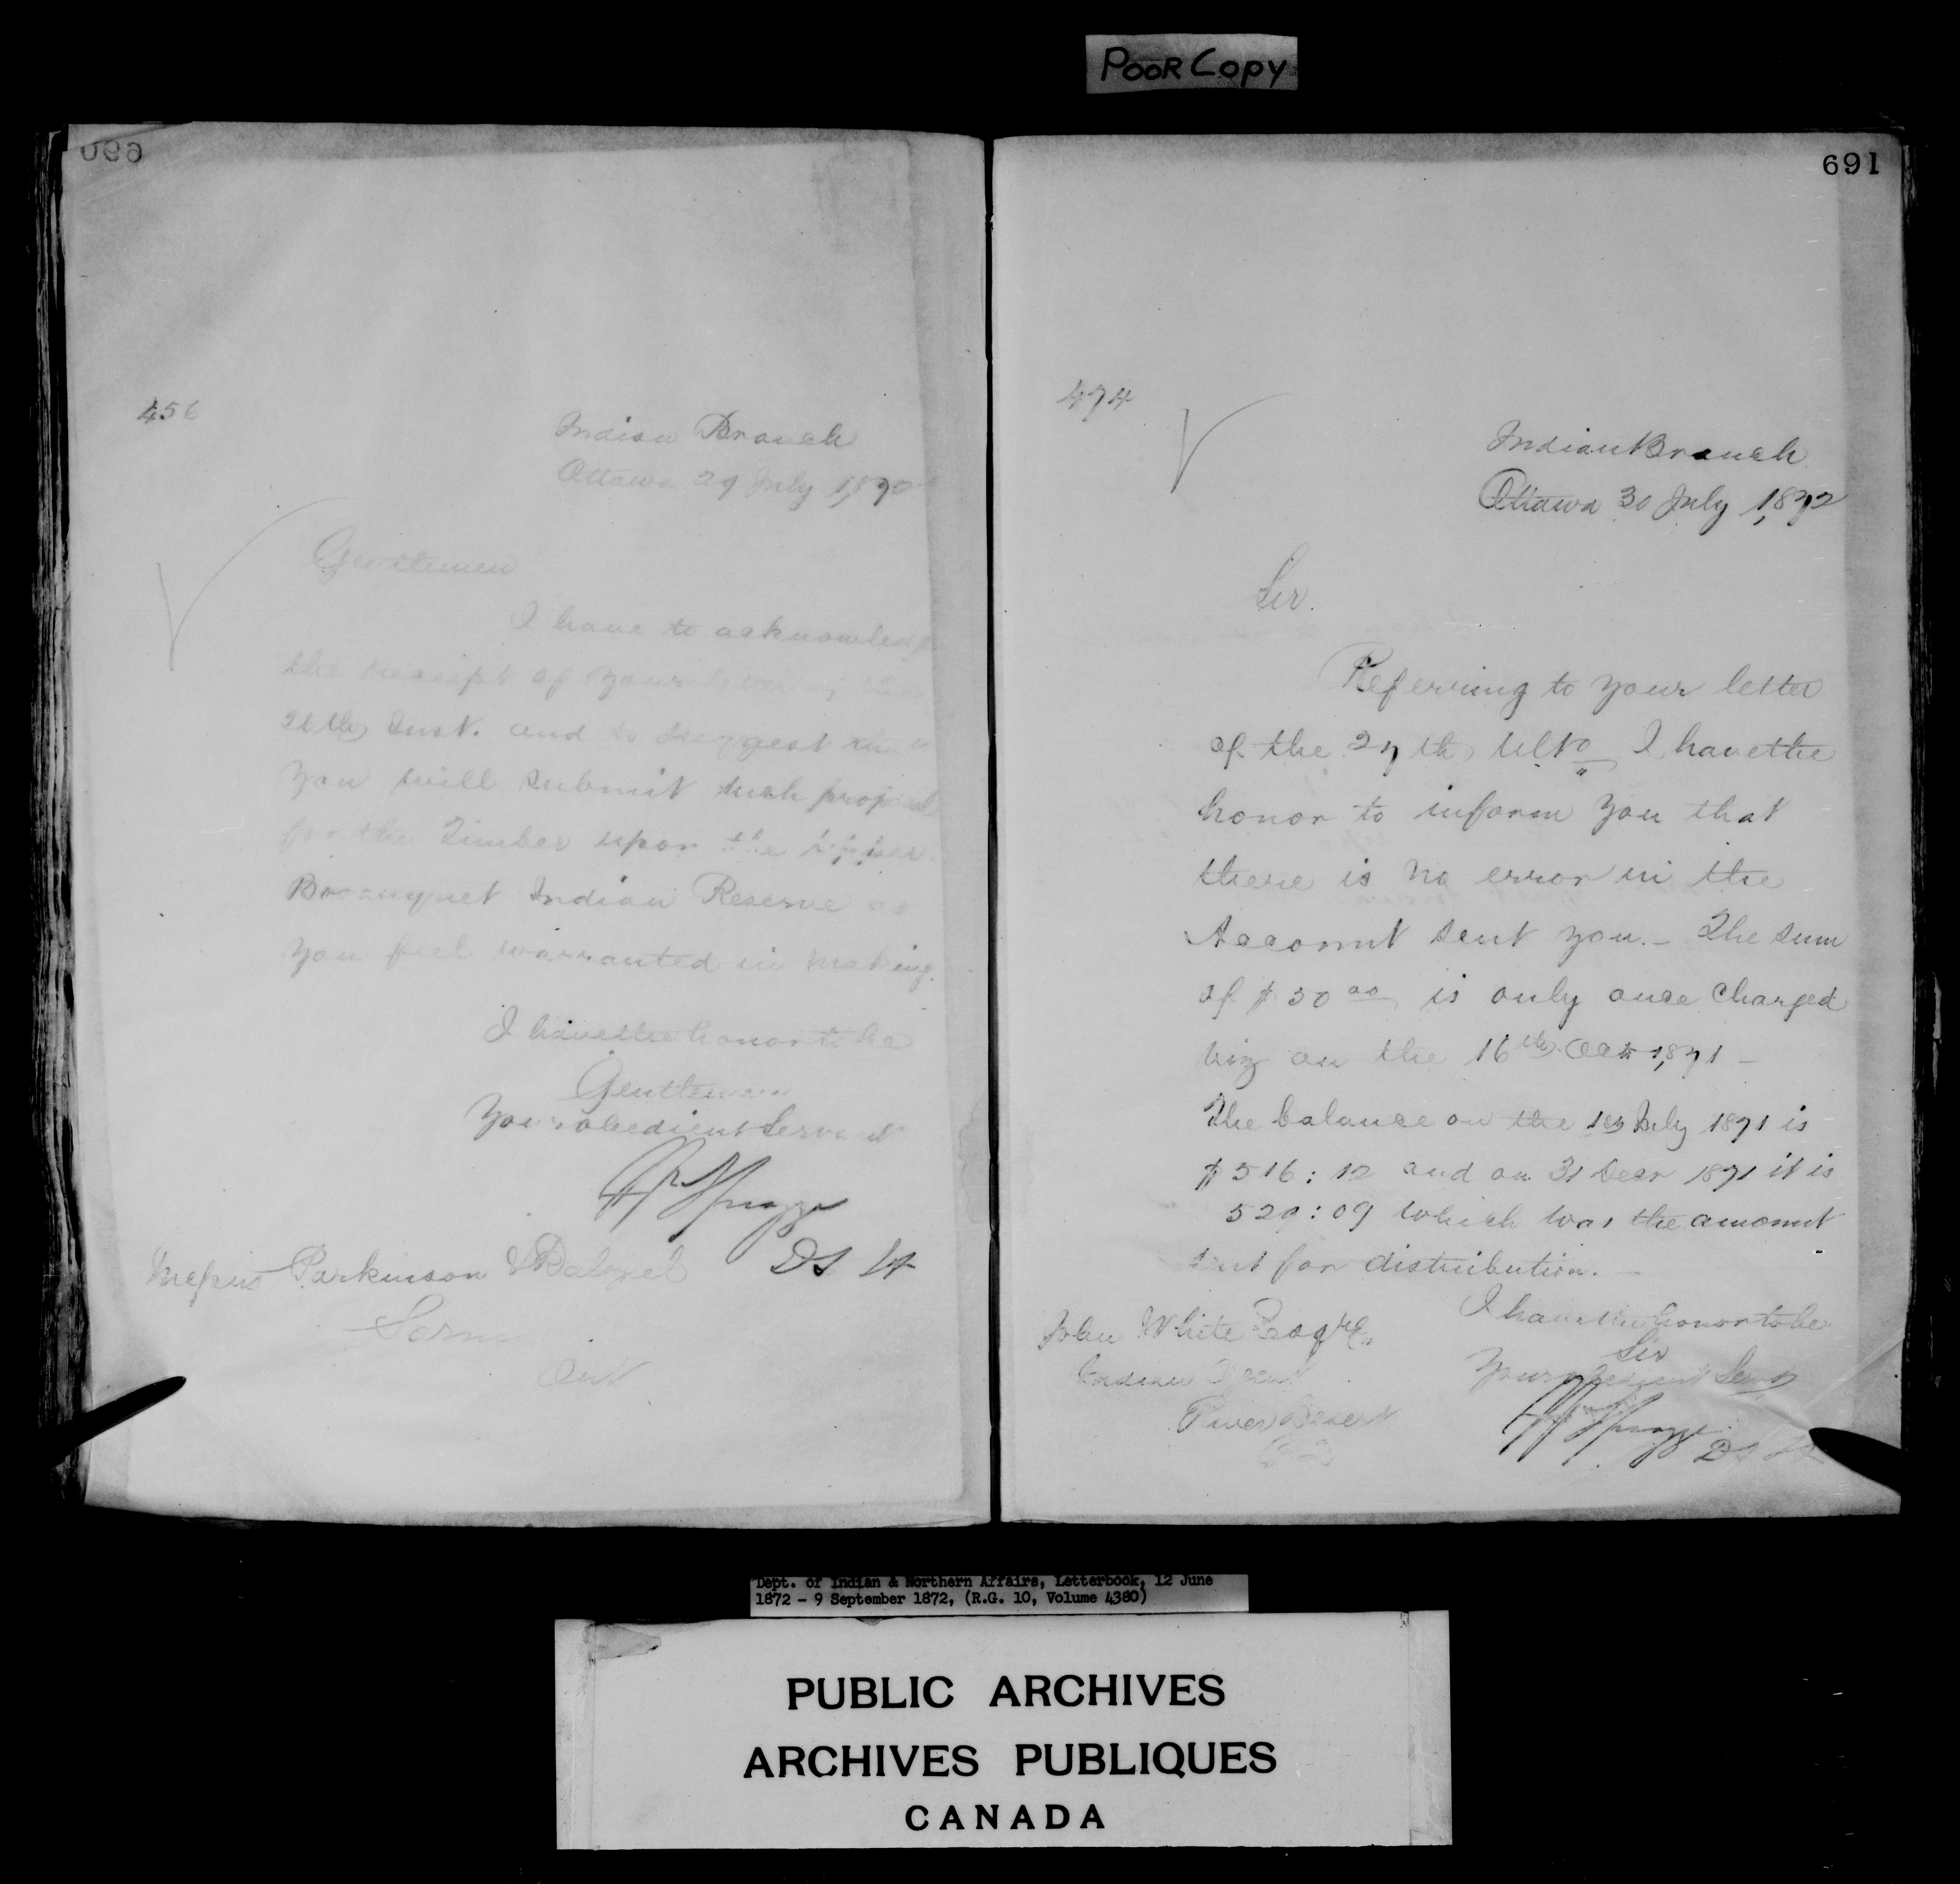 POOR COPY
690
456
Indian Branch
Ottawa 29 July 1,872
Gentlemen
I have to acknowledge
the receipt of your letter of the
26th Inst. and to suggest that
you will submit such proposal
for the Timber upon the
Bosanquet Indian Reserve as
you feel warranted in making.
I have the honor to be
Gentlemen
Your obedient Servant
Spragge
DS IA
Messrs Parkinson & Dalziel
Sarnia
Ont
691
474
Indian Branch
Ottawa 30 July 1,872
Sir.
Referring to your letter
of the 27th Ulto I have the
honor to inform you that
there is no error in the
Account sent you. - The sum
of $50 00 is only once Charged
viz on the 16th Oct 1,871 -
The balance on the 1st July 1871 is
$516:12 and on 31 Decr 1871 it is
520:09 which was the amount
sent for distribution. -
I have the honor to be
Sir
Your obedient Servt
Spragge
DS IA
John White Esqre
Indian Agent
River Desert
Dept. of Indian & Northern Affairs, Letterbook, 12 June
1872 - 9 September 1872, (R.G. 10, Volume 4380)
PUBLIC ARCHIVES
ARCHIVES PUBLIQUES
CANADA